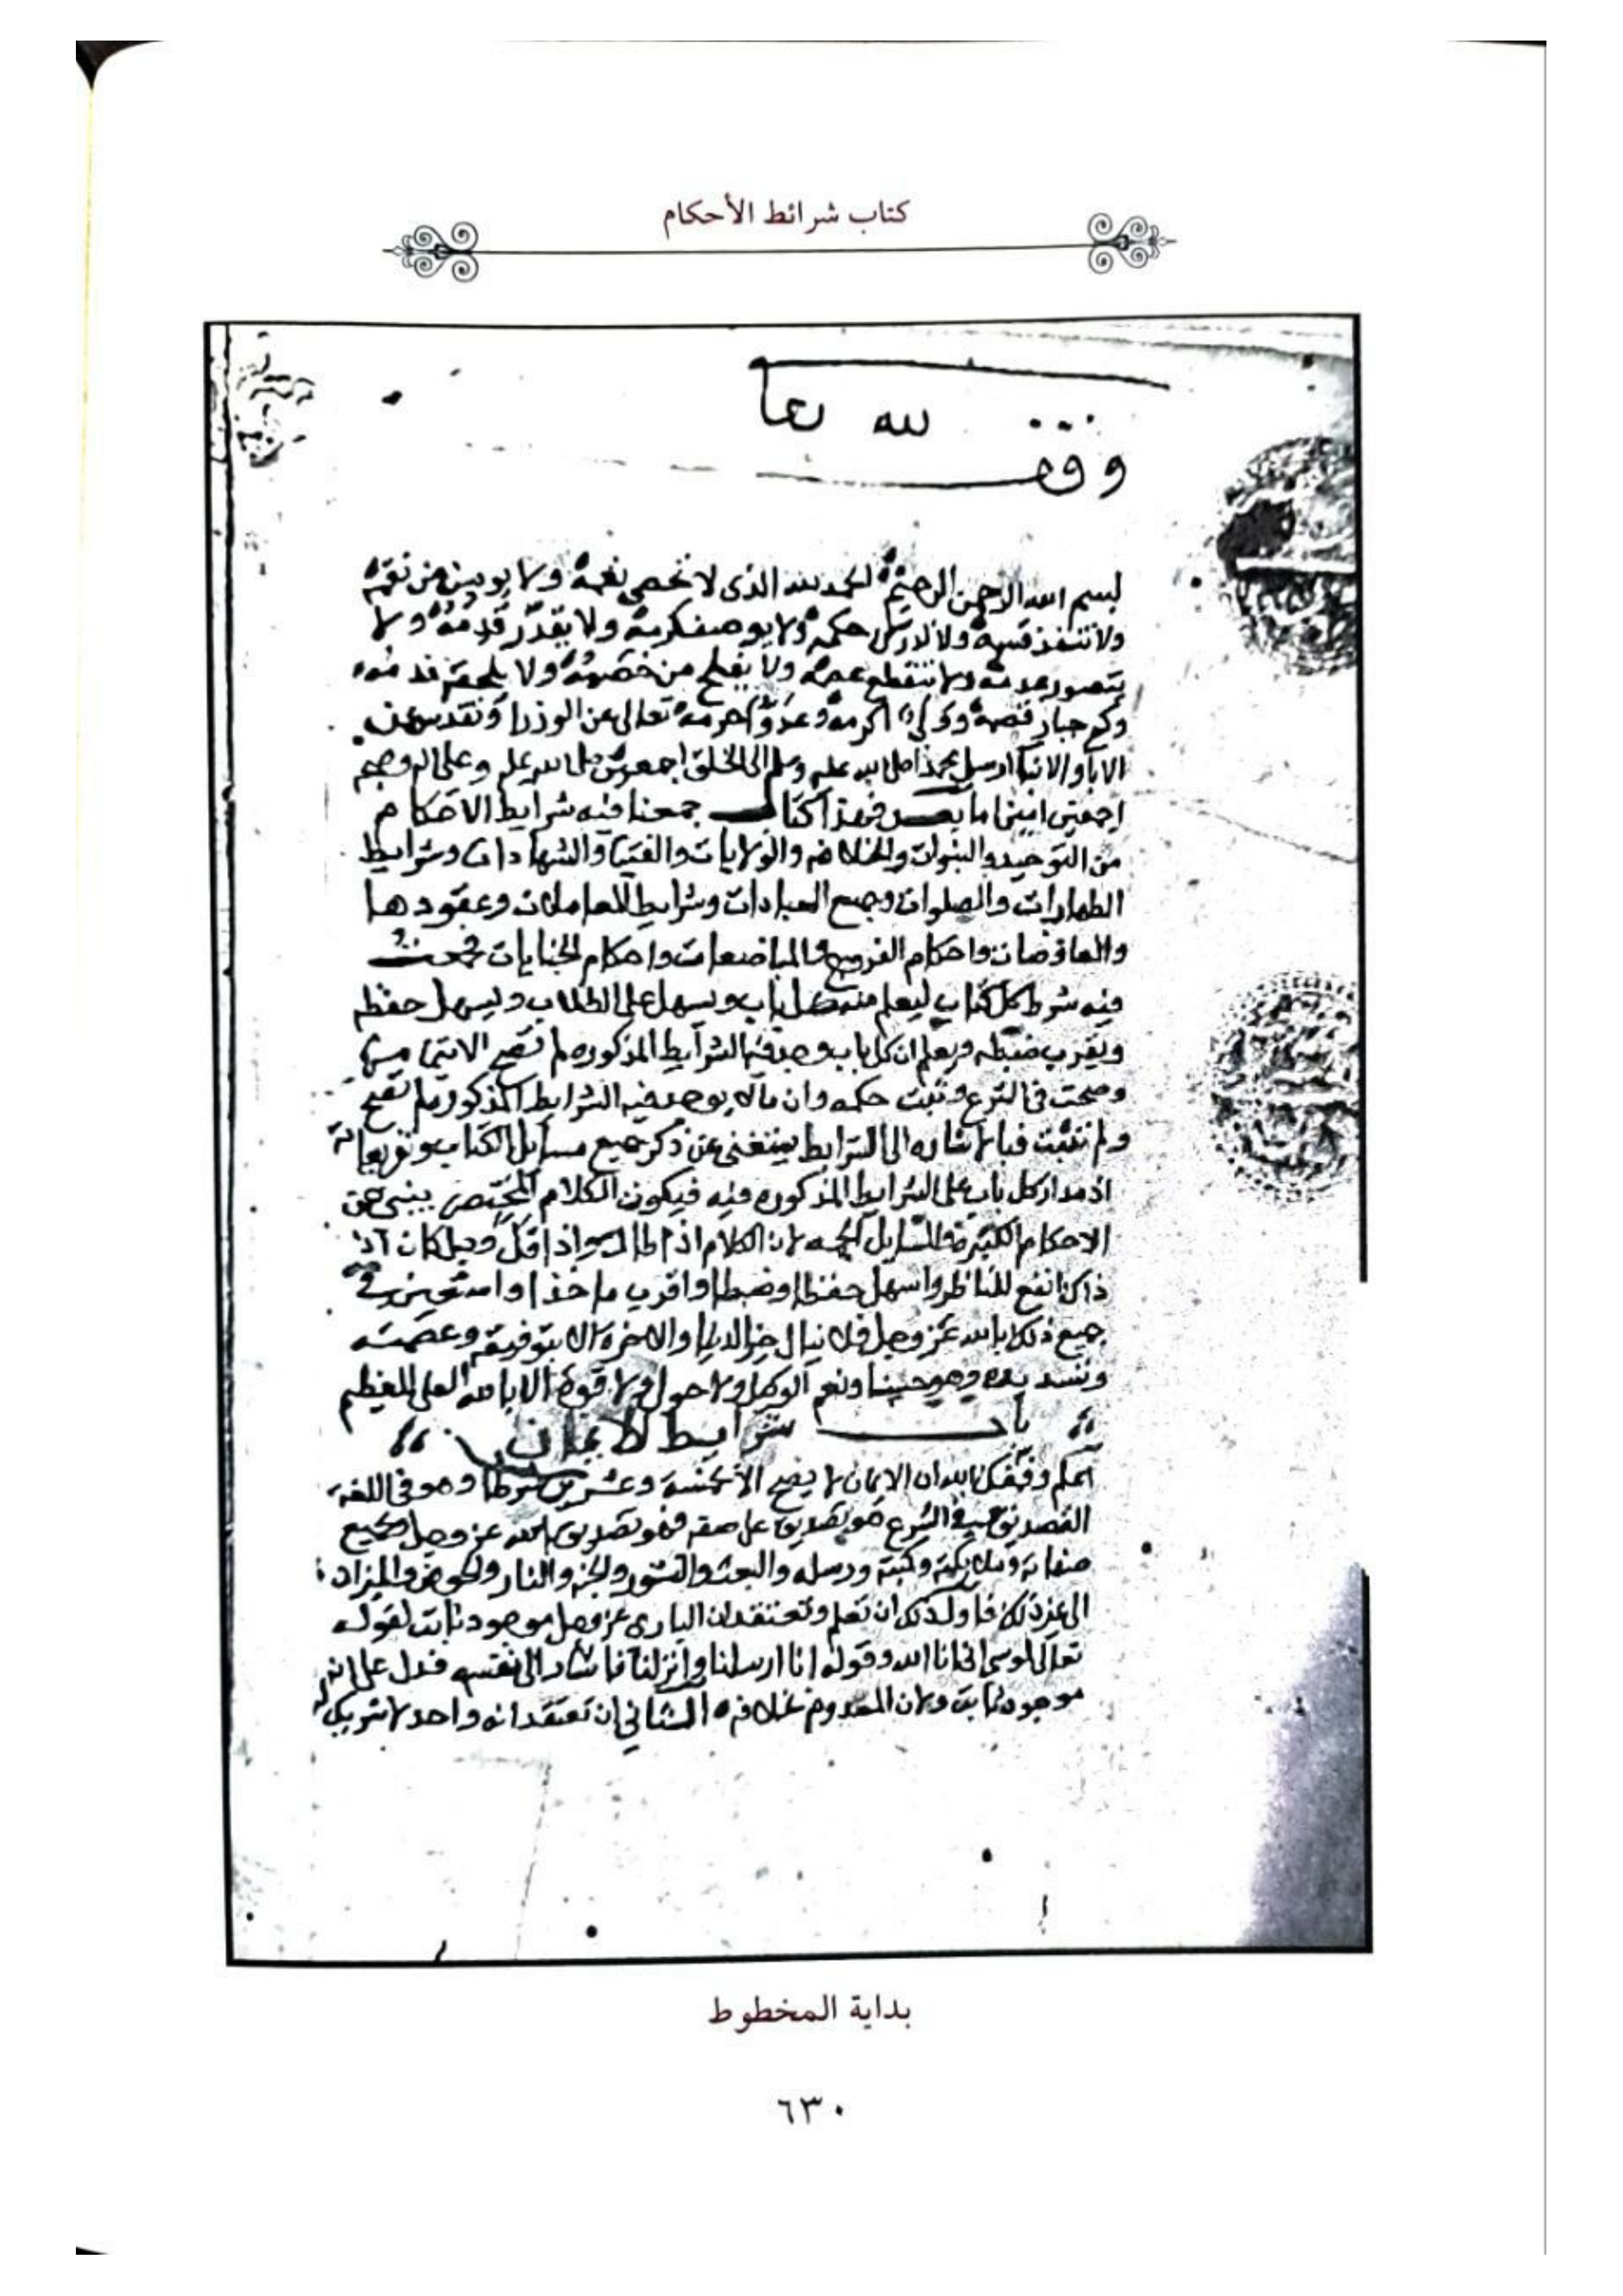 كتاب شرائط الأحكام
لله تعا
وقف
بسم الله الرحمن الرحيم الحمد لله الذى لا تحصى نعمه ولا من نقمه
ولا تنفذ قسمه ولا حكمه ولا يوصف كرمه ولا يقدر قدمه ولا
يتصور عدمه ولا تنقطع عصمه ولا يفلح من خصمه ولا يلحقه ندمه
وكم جبار قصمه وولى اكرمه وعدو احرمه تعالى عن الوزرا وتقدس عن
الابا والابنا ارسل محمدا صلى الله عليه وسلم الى الخلق اجمعين صلى الله عليه وعلى اله وصحبه
اجمعين امين اما بعد فهذا كتاب جمعنا فيه شرايط الاحكام
من التوحيد والنبوات والخلافه والولايات والفتيا والشهادات وشرايط
الطهارات والصلوات وجميع العبادات وشرايط المعاملات وعقودها
والمعاوضات واحكام الفروج والمباضعات واحكام الجنايات فجمعت
فيه شرط كل كتاب ليعلم منه كل باب ويسهل على الطلاب ويسهل حفظه
ويقرب ضبطه ويعلم ان كل باب وجد فيه الشرايط المذكوره
وصحت فى الشرع وثبت حكمه وان ما لم يوجد فيه الشرايط المذكوره لم تصح
ولم تثبت فبالاشاره الى الشرايط يستغنى عن ذكر جميع مسايل الكتاب وتفريعاته
اذ مدار كل باب على الشرايط المذكوره فيه فيكون الكلام المختصر ينبى عن
الاحكام الكثيرة والمسايل الجمه لان الكلام اذا طال واذا قل وجل كان
ذاك انفع للناظر واسهل حفظا وضبطا واقرب ماخذا واستعين فى
جميع ذلك بالله عز وجل فلا ينال خير الدنيا والاخره الا بتوفيقه وعصمته
وتسديده وهو حسبنا ونعم الوكيل ولا حول ولا قوة الا بالله العلى العظيم
باب شرايط الايمان
اعلم وفقك الله ان الايمان لا يصح الا بخمسة وعشرين شرطا وهو فى اللغة
التصديق وفى الشرع هو تصديق على صفه فهو تصديق بالله عز وجل بجميع
صفاته وملايكته وكتبه ورسله والبعث والنشور والجنه والنار والحوض والميزان
الى غير ذلك فاول ذلك ان تعلم وتعتقد ان البارى عز وجل موجود ثابت لقوله
تعالى لموسى انى انا الله وقوله انا ارسلنا وانزلنا فاشار الى نفسه فدل على انه
موجود ثابت ولان المعدوم بخلافه الثانى ان تعتقد انه واحد لا شريك له
بداية المخطوط
٦٣٠